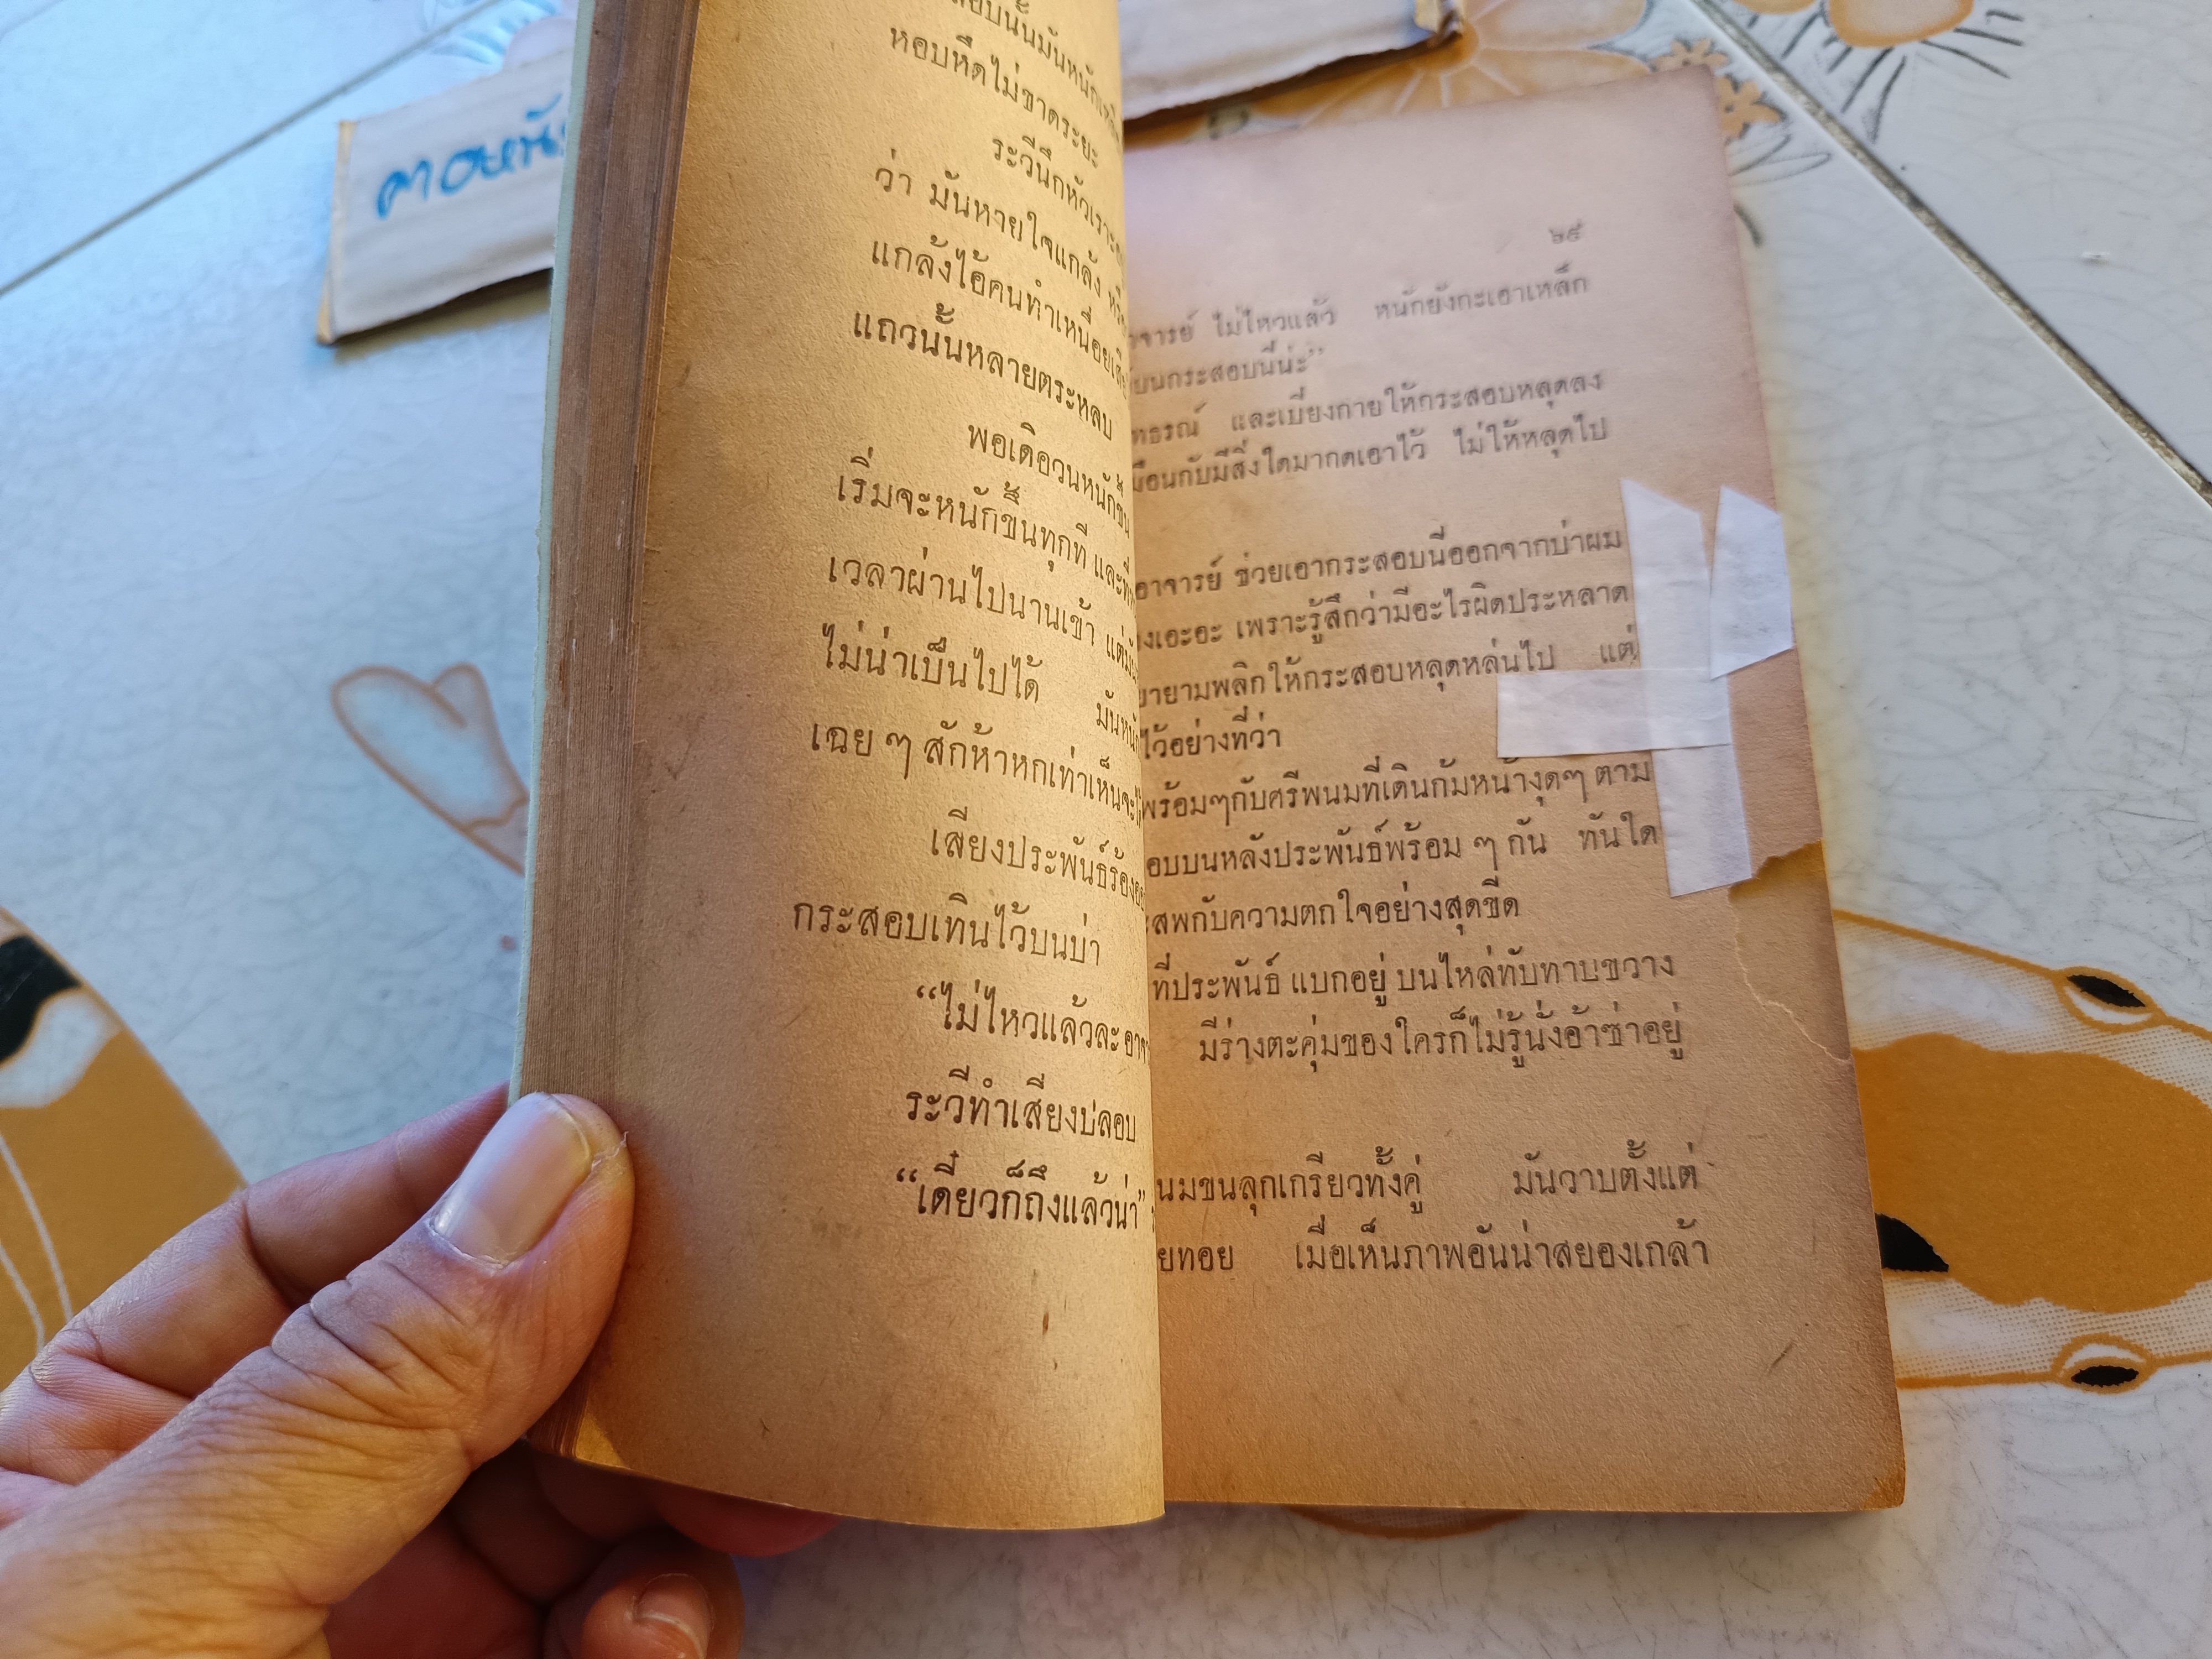 หอบหืดไม่ขาดระยะ
ระวีนึกหัวเราะ
ว่า มันหายใจแกล้ง
แกล้งไอ้คนทำเหนื่อย
แถวนั้นหลายตระหลบ
พอเดือวนหนักขึ้น
เริ่มจะหนักขึ้นทุกที และ
เวลาผ่านไปนานเข้า
ไม่น่าเป็นไปได้ มันหนัก
เฉย ๆ สักห้าหกเท่าเห็นจะ
เสียงประพันธ์ร้อง
กระสอบเทินไว้บนบ่า
“ไม่ไหวแล้วละ
ระวีทำเสียงปลอบ
“เดี๋ยวก็ถึงแล้วน่า”
๖๕
จารย์ ไม่ไหวแล้ว หนักยังกะเอาเหล็ก
บนกระสอบนี้น่ะ”
และเบี่ยงกายให้กระสอบหลุดลง
มือนกับมีสิ่งใดมากดเอาไว้ ไม่ให้หลุดไป
อาจารย์ ช่วยเอากระสอบนี่ออกจากบ่าผม
งเอะอะ เพราะรู้สึกว่ามีอะไรผิดประหลาด
ยายามพลิกให้กระสอบหลุดหล่นไป แต่
ไว้อย่างที่ว่า
พร้อมๆกับศรีพนมที่เดินก้มหน้างุดๆ ตาม
อบบนหลังประพันธ์พร้อม ๆ กัน ทันใด
ะสพกับความตกใจอย่างสุดขีด
ที่ประพันธ์ แบกอยู่ บนไหล่ทับทาบขวาง
มีร่างตะคุ่มของใครก็ไม่รู้นั่งอ้าซ่าอยู่
นมขนลุกเกรียวทั้งคู่ มันวาบตั้งแต่
ยทอย เมื่อเห็นภาพอันน่าสยองเกล้า